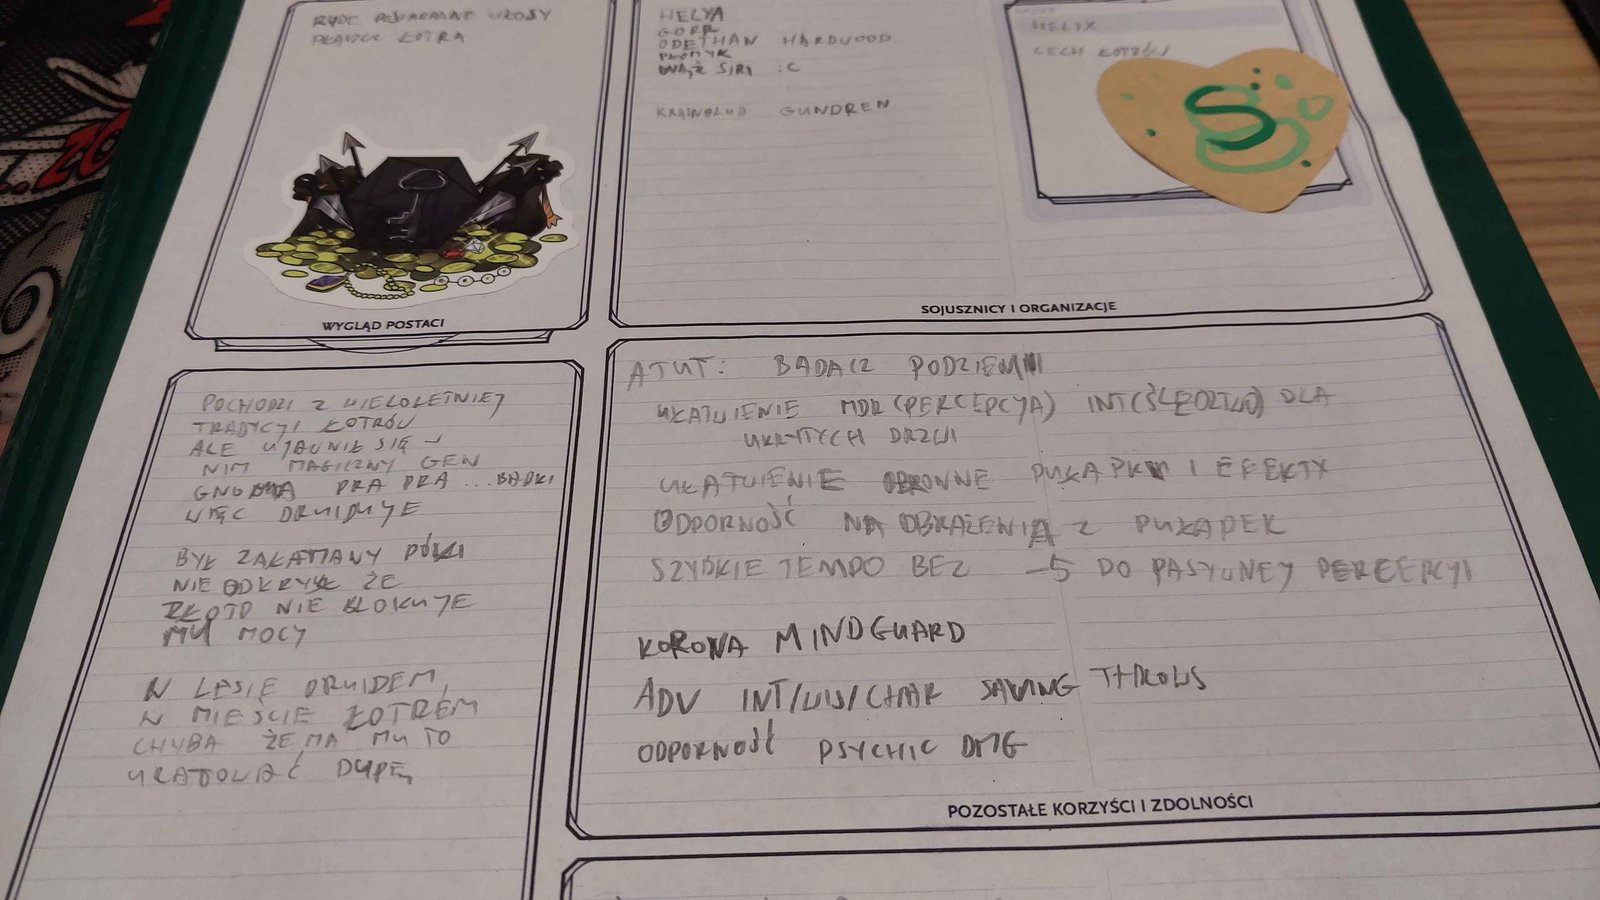 RUDE POŁAMANE WŁOSY
PŁASZCZ ŁOTRA
WYGLĄD POSTACI
HELYA
GORR
ODETHAN HARDWOOD
PŁOMYK
WĄŻ SIRI :C
KRASNOLUD GUNDREN
HELIX
LECH
S
SOJUSZNICY I ORGANIZACJE
POCHODZI Z WIELOLETNIEJ
TRADYCJI ŁOTRÓW
ALE UJAWNIŁ SIĘ W
NIM MAGICZNY GEN
GNOMA PRA PRA ... BABKI
WIĘC DRUIDUJE
BYŁ ZAŁAMANY PÓKI
NIE ODKRYŁ ŻE
ZŁOTO NIE BLOKUJE
MU MOCY
W LESIE DRUIDEM,
W MIEŚCIE ŁOTREM
CHYBA ŻE MA MU TO
URATOWAĆ DUPĘ
ATUT: BADACZ PODZIEMI
UŁATWIENIE MDR (PERCEPCJA) INT (ŚLEDZTWO) DLA
UKRYTYCH DRZWI
UŁATWIENIE OBRONNE PUŁAPKI I EFEKTY
ODPORNOŚĆ NA OBRAŻENIA Z PUŁAPEK
SZYBKIE TEMPO BEZ -5 DO PASYWNEJ PERCEPCJI
KORONA MINDGUARD
ADV INT/WIS/CHAR SAVING THROWS
ODPORNOŚĆ PSYCHIC DMG
POZOSTAŁE KORZYŚCI I ZDOLNOŚCI